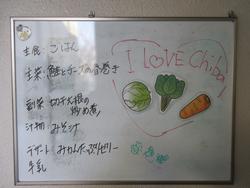 主食 ごはん
主菜 鮭とチーズの春巻き
副菜 切干大根の
炒め煮
汁物 みそ汁
デザート みかんたっぷりゼリー
牛乳
I LOVE Chiba